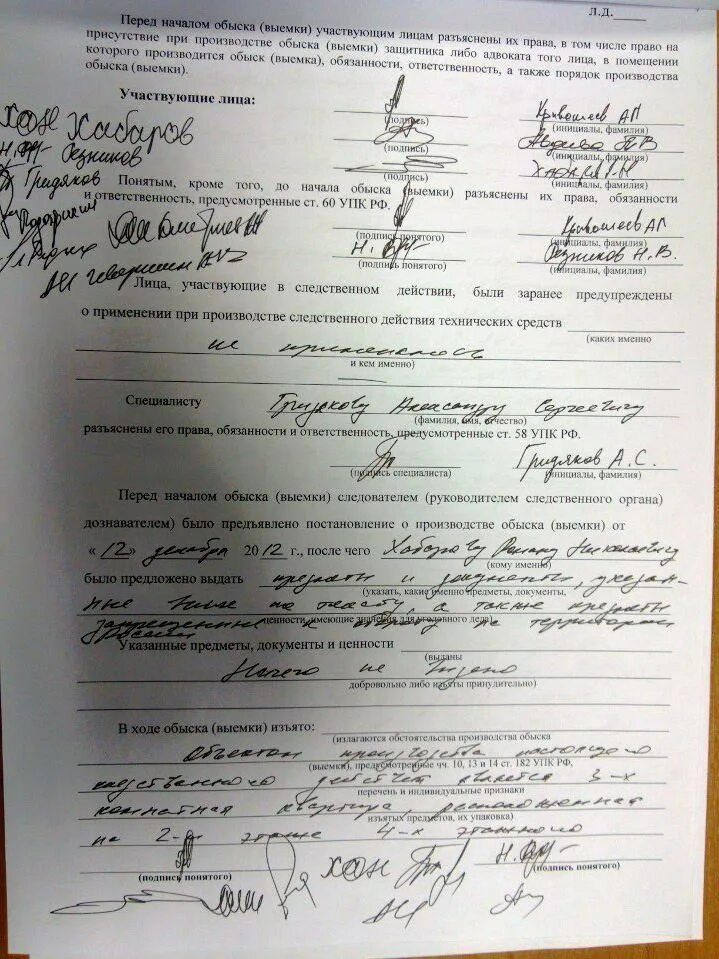 Л.Д.
Перед началом обыска (выемки) участвующим лицам разъяснены их права, в том числе право на
присутствие при производстве обыска (выемки) защитника либо адвоката того лица, в помещении
которого производится обыск (выемка), обязанности, ответственность, а также порядок производства
обыска (выемки).
Участвующие лица:
Кривошеев АП
(подпись) (инициалы, фамилия)
ХОН Хабаров
(подпись) (инициалы, фамилия)
Резников
(подпись) (инициалы, фамилия)
Гридяков
Понятым, кроме того, до начала обыска (выемки) разъяснены их права, обязанности
и ответственность, предусмотренные ст. 60 УПК РФ.
Кривошеев АП
(подпись понятого) (инициалы, фамилия)
Резников Н.В.
(подпись понятого) (инициалы, фамилия)
Лица, участвующие в следственном действии, были заранее предупреждены
о применении при производстве следственного действия технических средств
(каких именно
не применялось
и кем именно)
Специалисту Гридякову Александру Сергеевичу
(фамилия, имя, отчество)
разъяснены его права, обязанности и ответственность, предусмотренные ст. 58 УПК РФ.
Гридяков А.С.
(подпись специалиста) (инициалы, фамилия)
Перед началом обыска (выемки) следователем (руководителем следственного органа)
дознавателем) было предъявлено постановление о производстве обыска (выемки) от
«12» декабря 2012 г., после чего Хабарову Роману Николаевичу
(кому именно)
было предложено выдать предметы и документы, указан-
(указать, какие именно предметы, документы,
ные выше по тексту, а также предметы
ценности, имеющие значения для уголовного дела)
запрещенные к обороту на территории
России
Указанные предметы, документы и ценности
(выданы
Ничего не выдано
добровольно либо изъяты принудительно)
В ходе обыска (выемки) изъято:
(излагаются обстоятельства производства обыска
Объектом производства настоящего
(выемки), предусмотренные чч. 10, 13 и 14 ст. 182 УПК РФ,
следственного действия является 3-х
перечень и индивидуальные признаки
комнатная квартира, расположенная
изъятых предметов, их упаковка)
на 2-м этаже 4-х этажного
(подпись понятого) (подпись понятого)
ХОН